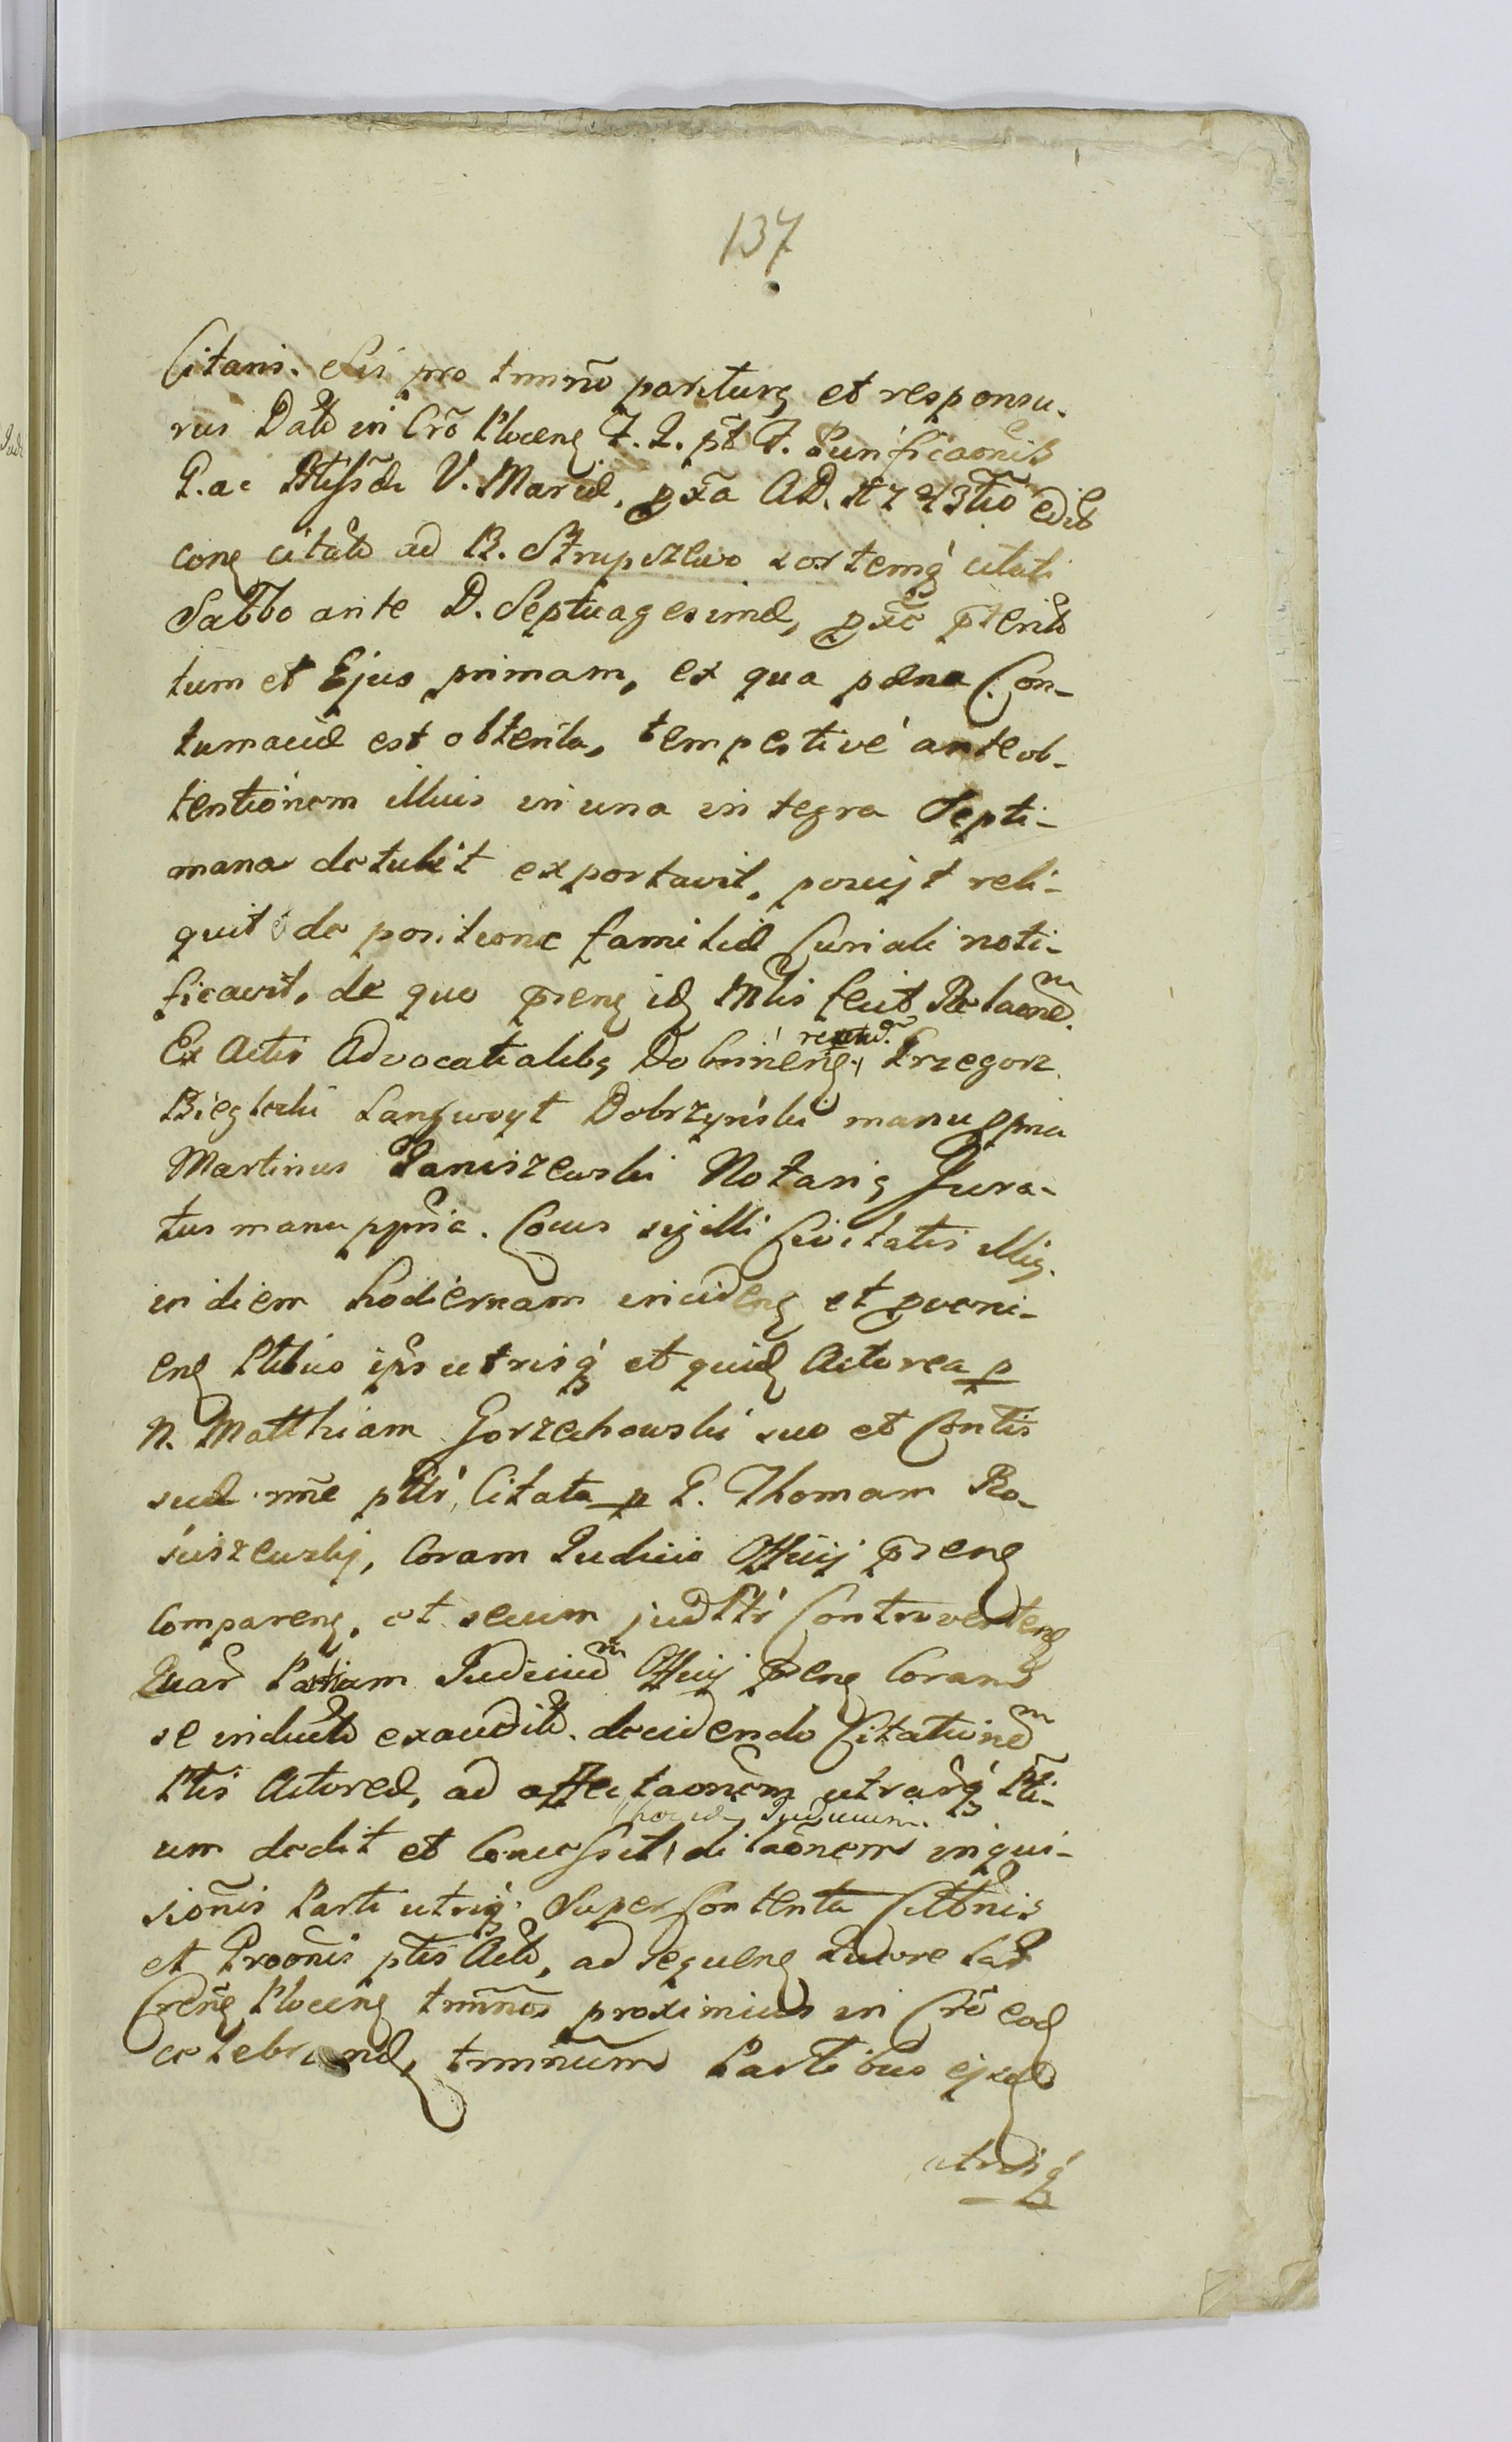 137
Citans. Sis pro tmnõ pariturꝯ et responsu-
rus Datt in Crõ Plocenꝯ F. 2. pt F. Purificaonis
G. ac Btissæ V. Mariæ, pxa AD. 1743tio edit
conꝯ citatt ad B. Strupczewo sortemq́ citati
Sabbo ante D. Septuagesimæ, pxe pterit
tum et Ejus primam, ex qua pæna Con-
tumaciæ est obtenta, tempestivé ante ob-
tentionem illius in una integra Septi-
mana detulit exportavit, posuit reli-
quit & de positione familiæ Curiali noti-
ficavit, de quo prænꝯ idꝫ Mtis fecit Relaonem.
Ex Actis Advocatialibꝯ Dobrinenꝯ Grzegorz
Bieglecki Lanfwoyt Dobrzyński manu ppria
Martinus Janiszewski Notariꝯ Jura-
tus manu ppria. Locus sigilli Civitatis illiꝯ.
in diem hodiernam incidenꝯ et pveni-
enꝯ Ptibus ipis utrisq́ et quidꝫ Actorea p
N. Matthiam Gorzechowski suo et Contis
suæ nne pttr, Citata p G. Thomam Ro-
sciszewski, Coram Judicio Officij prænꝯ
Comparenꝯ, et secum judttr Controvertenꝯ
Quar Partium Judicium Officij prænꝯ Coram
se induct exaudit. decidendo Citationem
Ptis Actoreæ, ad affectaonem utrarq́ Pti-
um dedit et Concessit dilaonem inqui-
Judicium
sionis Parti utriq́ Super Contenta Cittnis
et Proonis ptis Act, ad sequenꝯ Judiore Cast
Crenꝯ Plocenꝯ tmnos proximius in Crõ eodꝫ
celebrandꝫ, tmnum Partibus ejsdꝫ
utrisq́